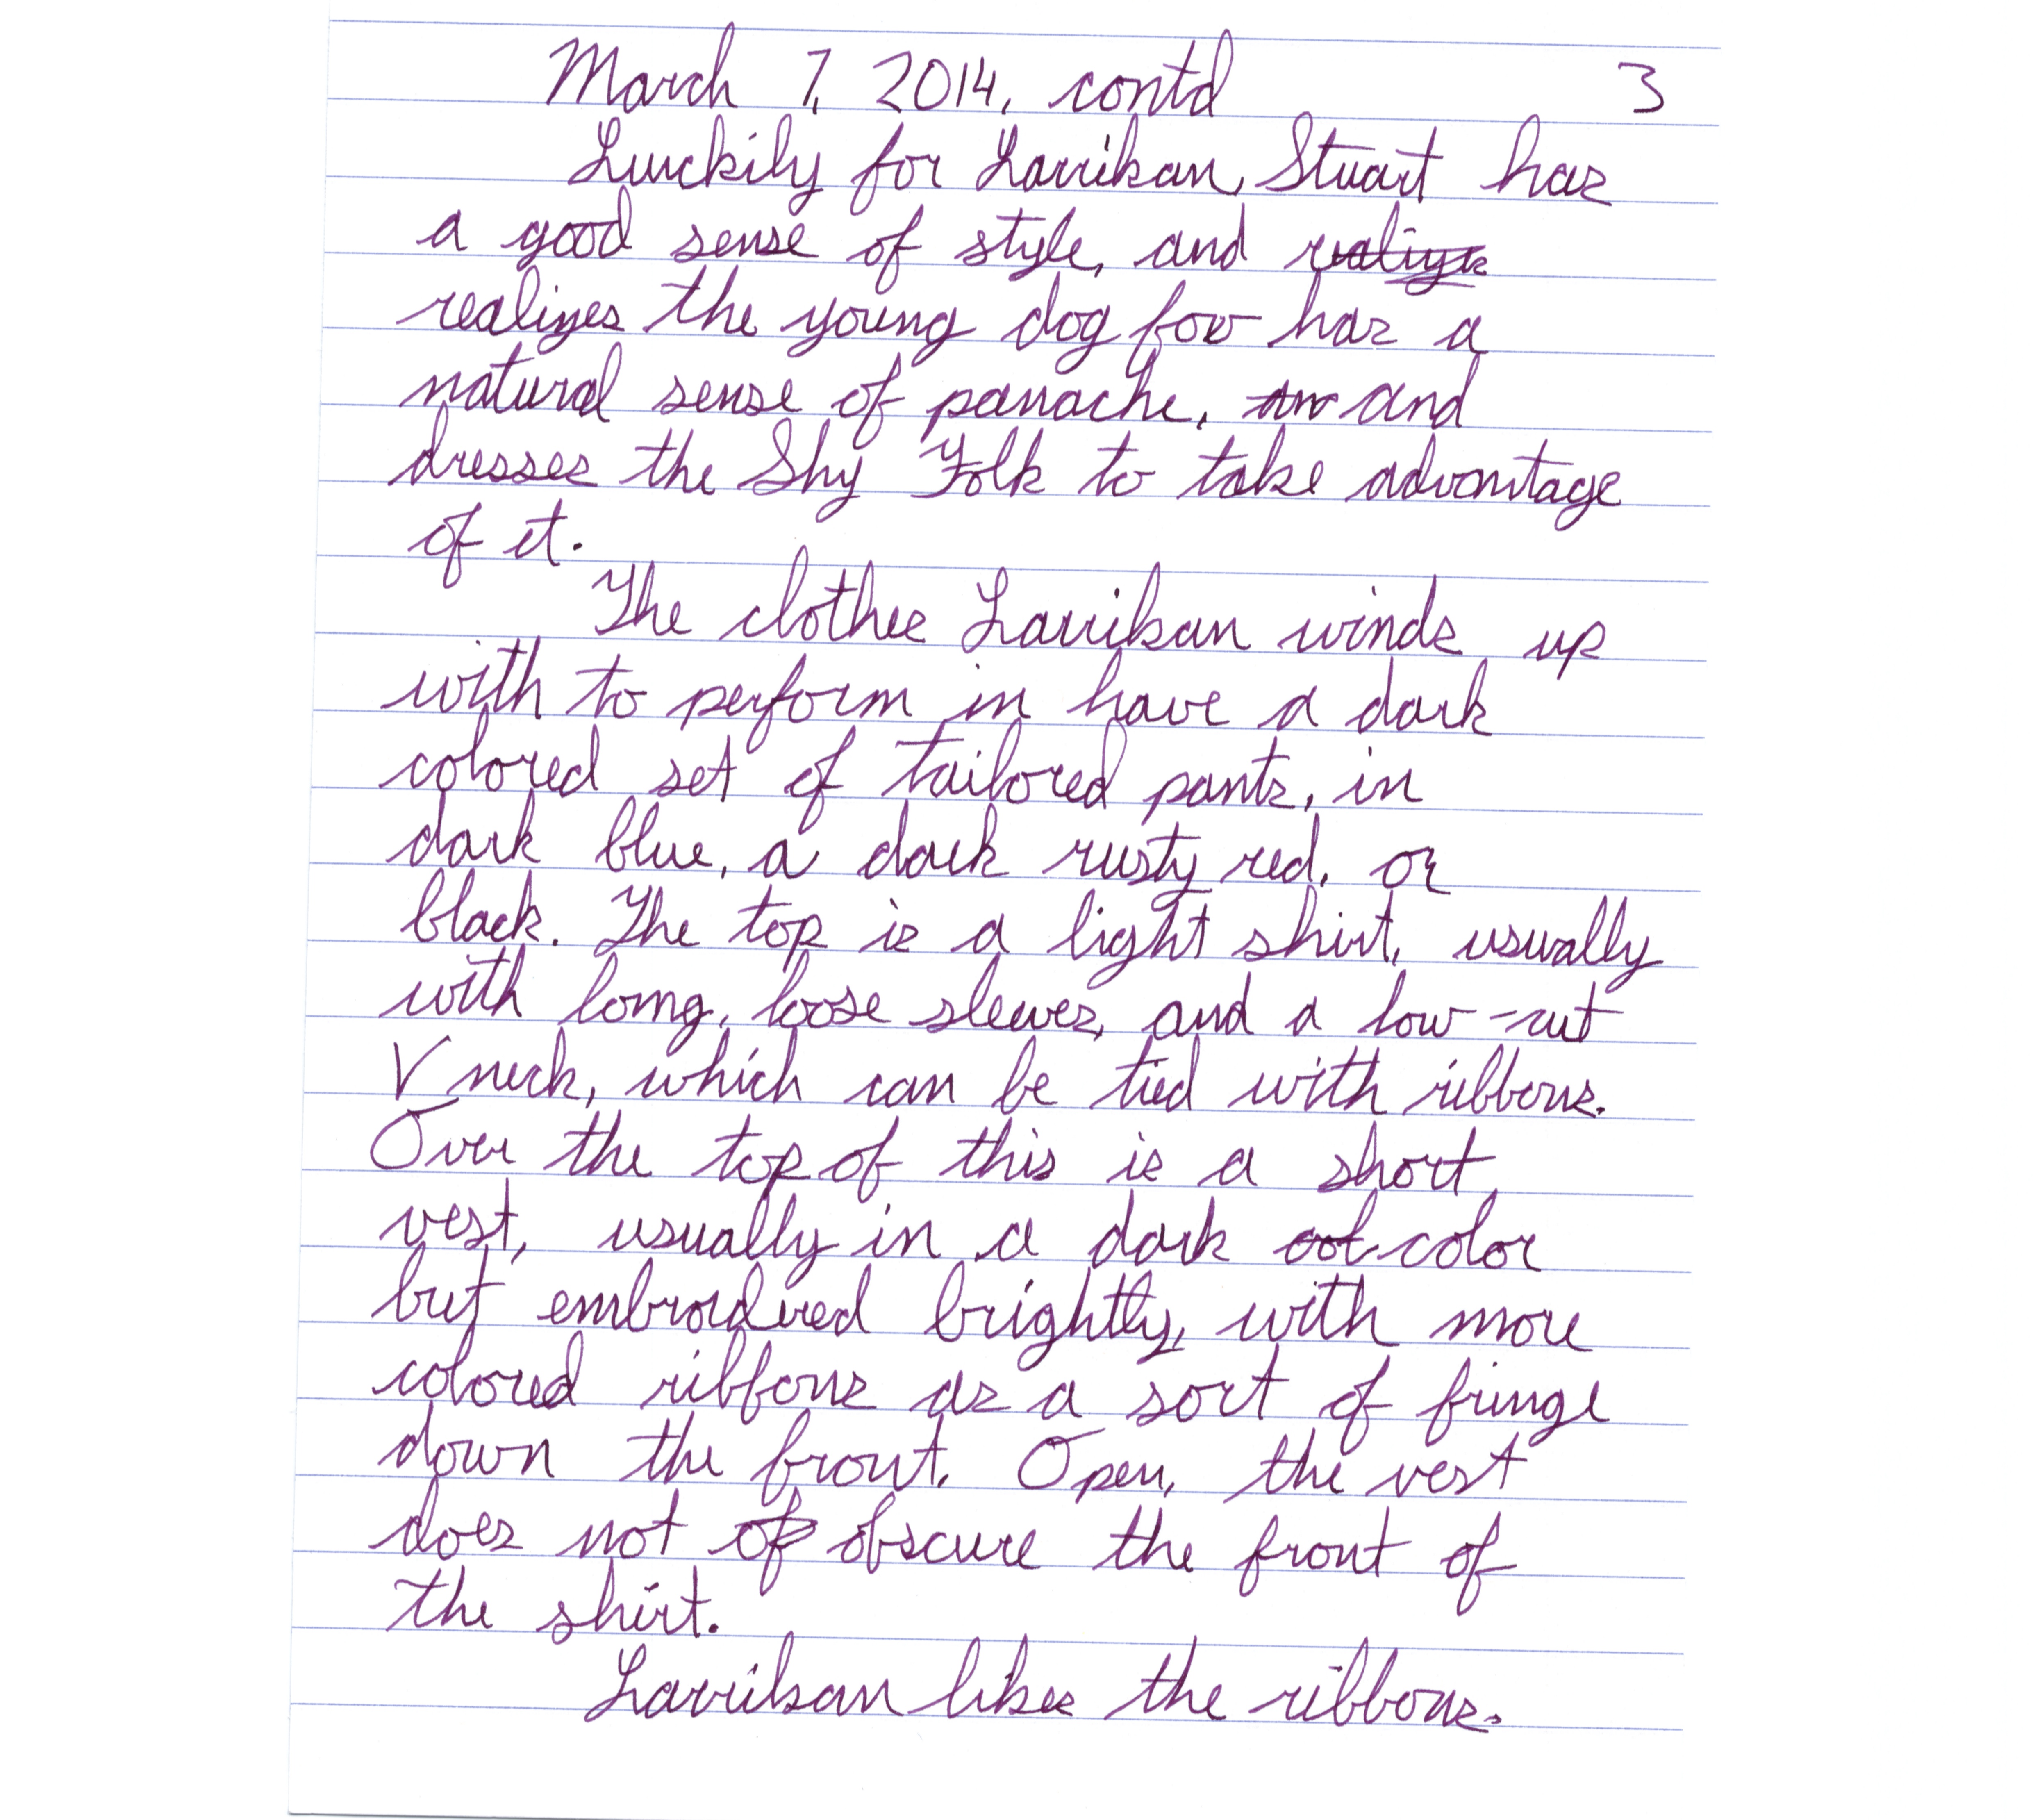 March 7, 2014, contd 3
Luckily for Larrikan, Stuart has
a good sense of style, and realize
realizes the young dog fox has a
natural sense of panache, an and
dresses the Shy Folk to take advantage
of it.
The clothes Larrikan winds up
with to perform in have a dark
colored set of tailored pants, in
dark blue, a dark rusty red, or
black. The top is a light shirt, usually
with long, loose sleeves, and a low-cut
V neck, which can be tied with ribbons.
Over the top of this is a short
vest, usually in a dark col color
but embroidered brightly, with more
colored ribbons as a sort of fringe
down the front. Open, the vest
does not ob obscure the front of
the shirt.
Larrikan likes the ribbons.